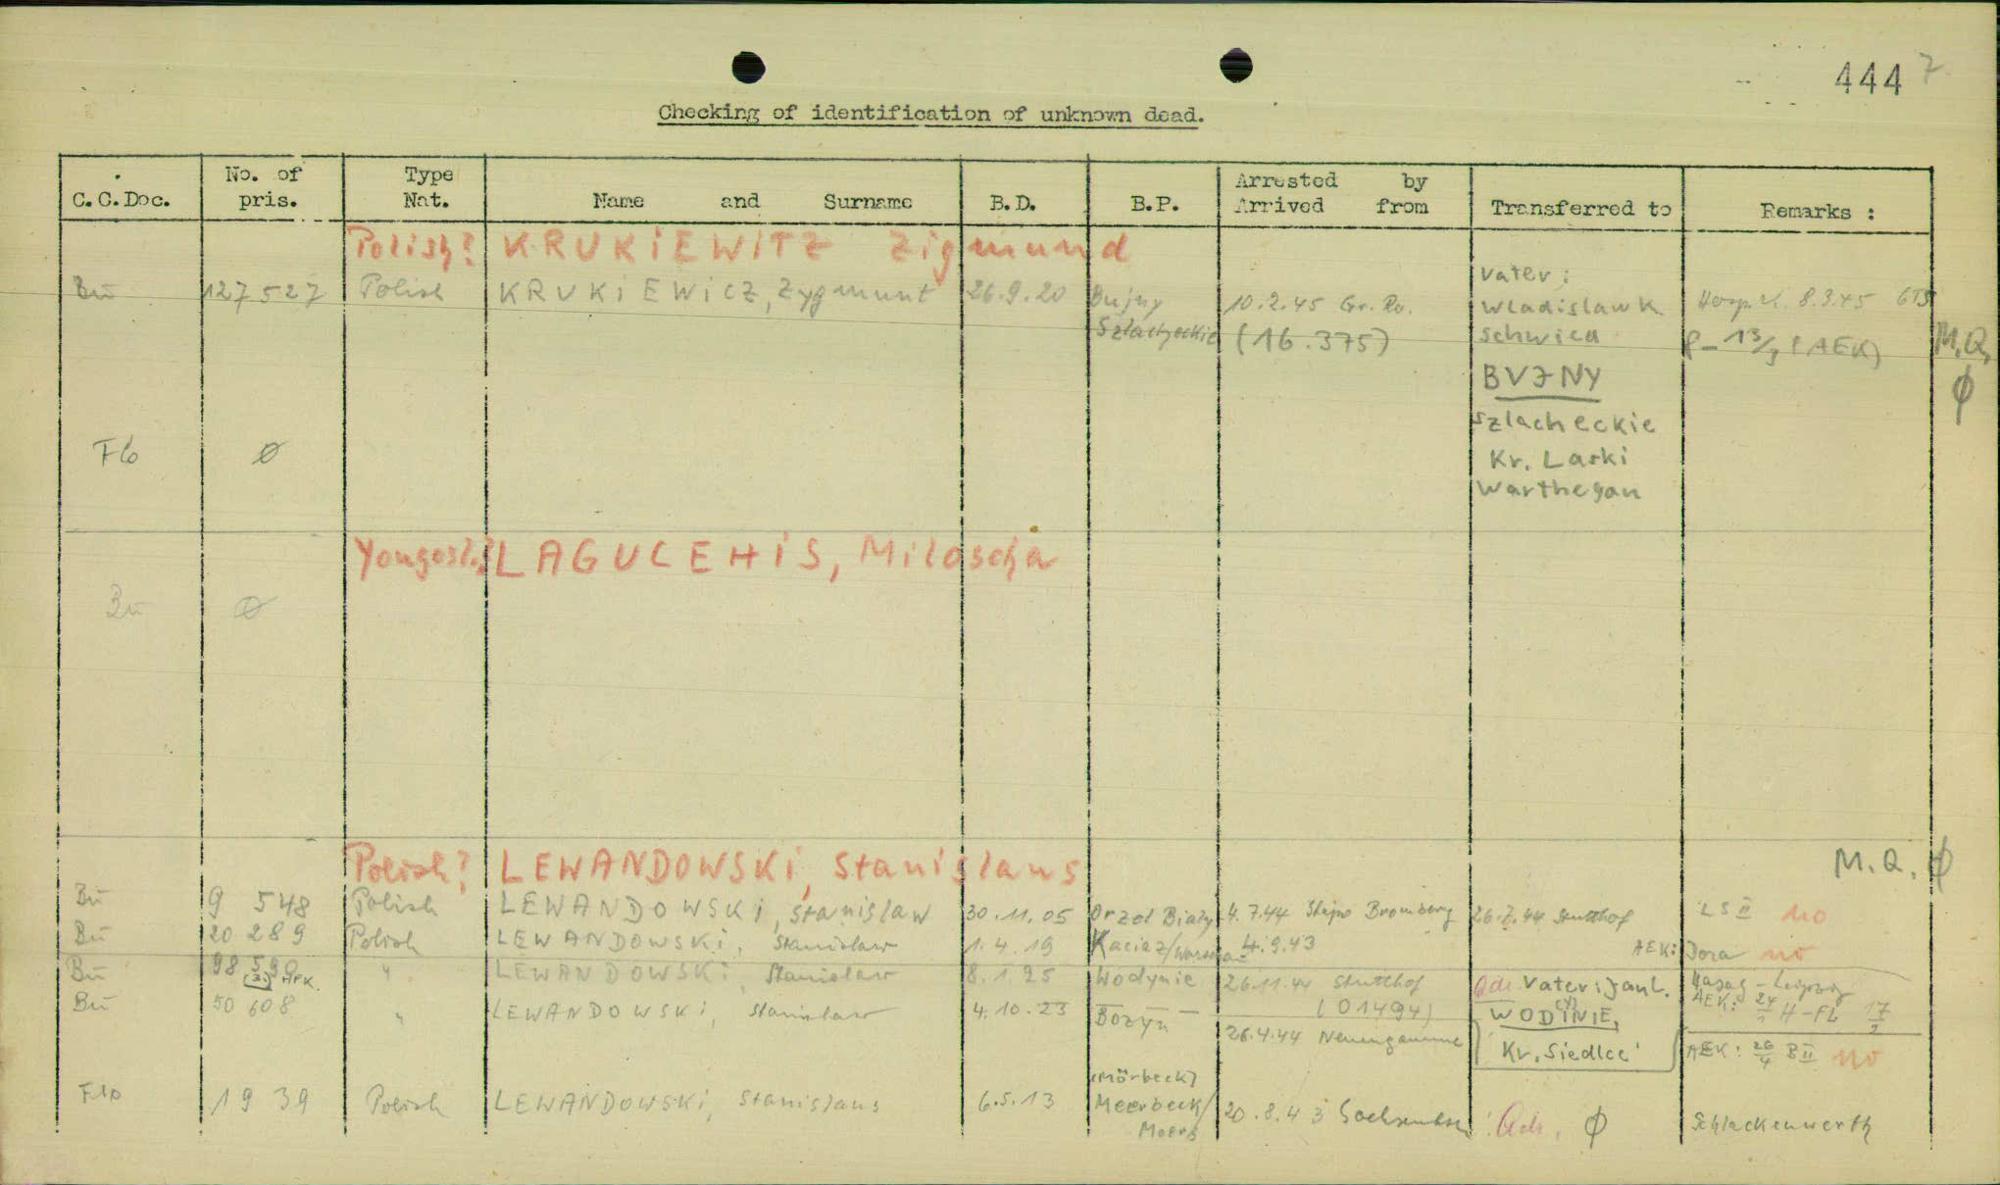 444 7
Checking of identification of unknown dead.
C.C.Doc. No. of pris. Type Nat. Name and Surname B.D. B.P. Arrested by Arrived from Transferred to Remarks :
Polish? KRUKiEWiTZ Zigmund
Bu 127 527 Polish KRUKiEWicZ, Zygmunt 26.9.20 Bujny Szlacheckie 10.2.45 Gr. Ro. (16.375)
Vater:
Wladislaw K.
BUJNY
Szlacheckie
Kr. Laski
Warthegau
8.3.45
(AEK)
M.Q. ϕ
Flo ϕ
Yougosl.? LAGUCEHiS, Miloscha
Bu ϕ
Polish? LEWANDOWSKi, Stanislaus
M.Q. ϕ
Bu 9 548 Polish LEWANDOWSKi, Stanislaw 30.11.05 Orzel Bialy 4.7.44 Stapo Bromberg 26.7.44 Stutthof LS II no
Bu 20 289 Polish LEWANDOWSKi, Stanislaw 1.4.19 4.9.43 AEK: Dora no
Bu " LEWANDOWSKi, Stanislaw 8.1.25 Wodynie 26.11.44 Stutthof (01494) Adr. Vater: WODiNiE, Kr. Siedlce Hasag - Leipzig AEK: H-FL 17/2
Bu 50 608 " LEWANDOWSKi, Stanislaw 4.10.23 Bozyn 26.4.44 Neuengamme AEK: 26/4 B II no
Flo 19 39 Polish LEWANDOWSKi, Stanislaus 6.5.13 (Mörbeck) Meerbeck/ Moers 20.8.43 Adr. ϕ Schlackenwerth